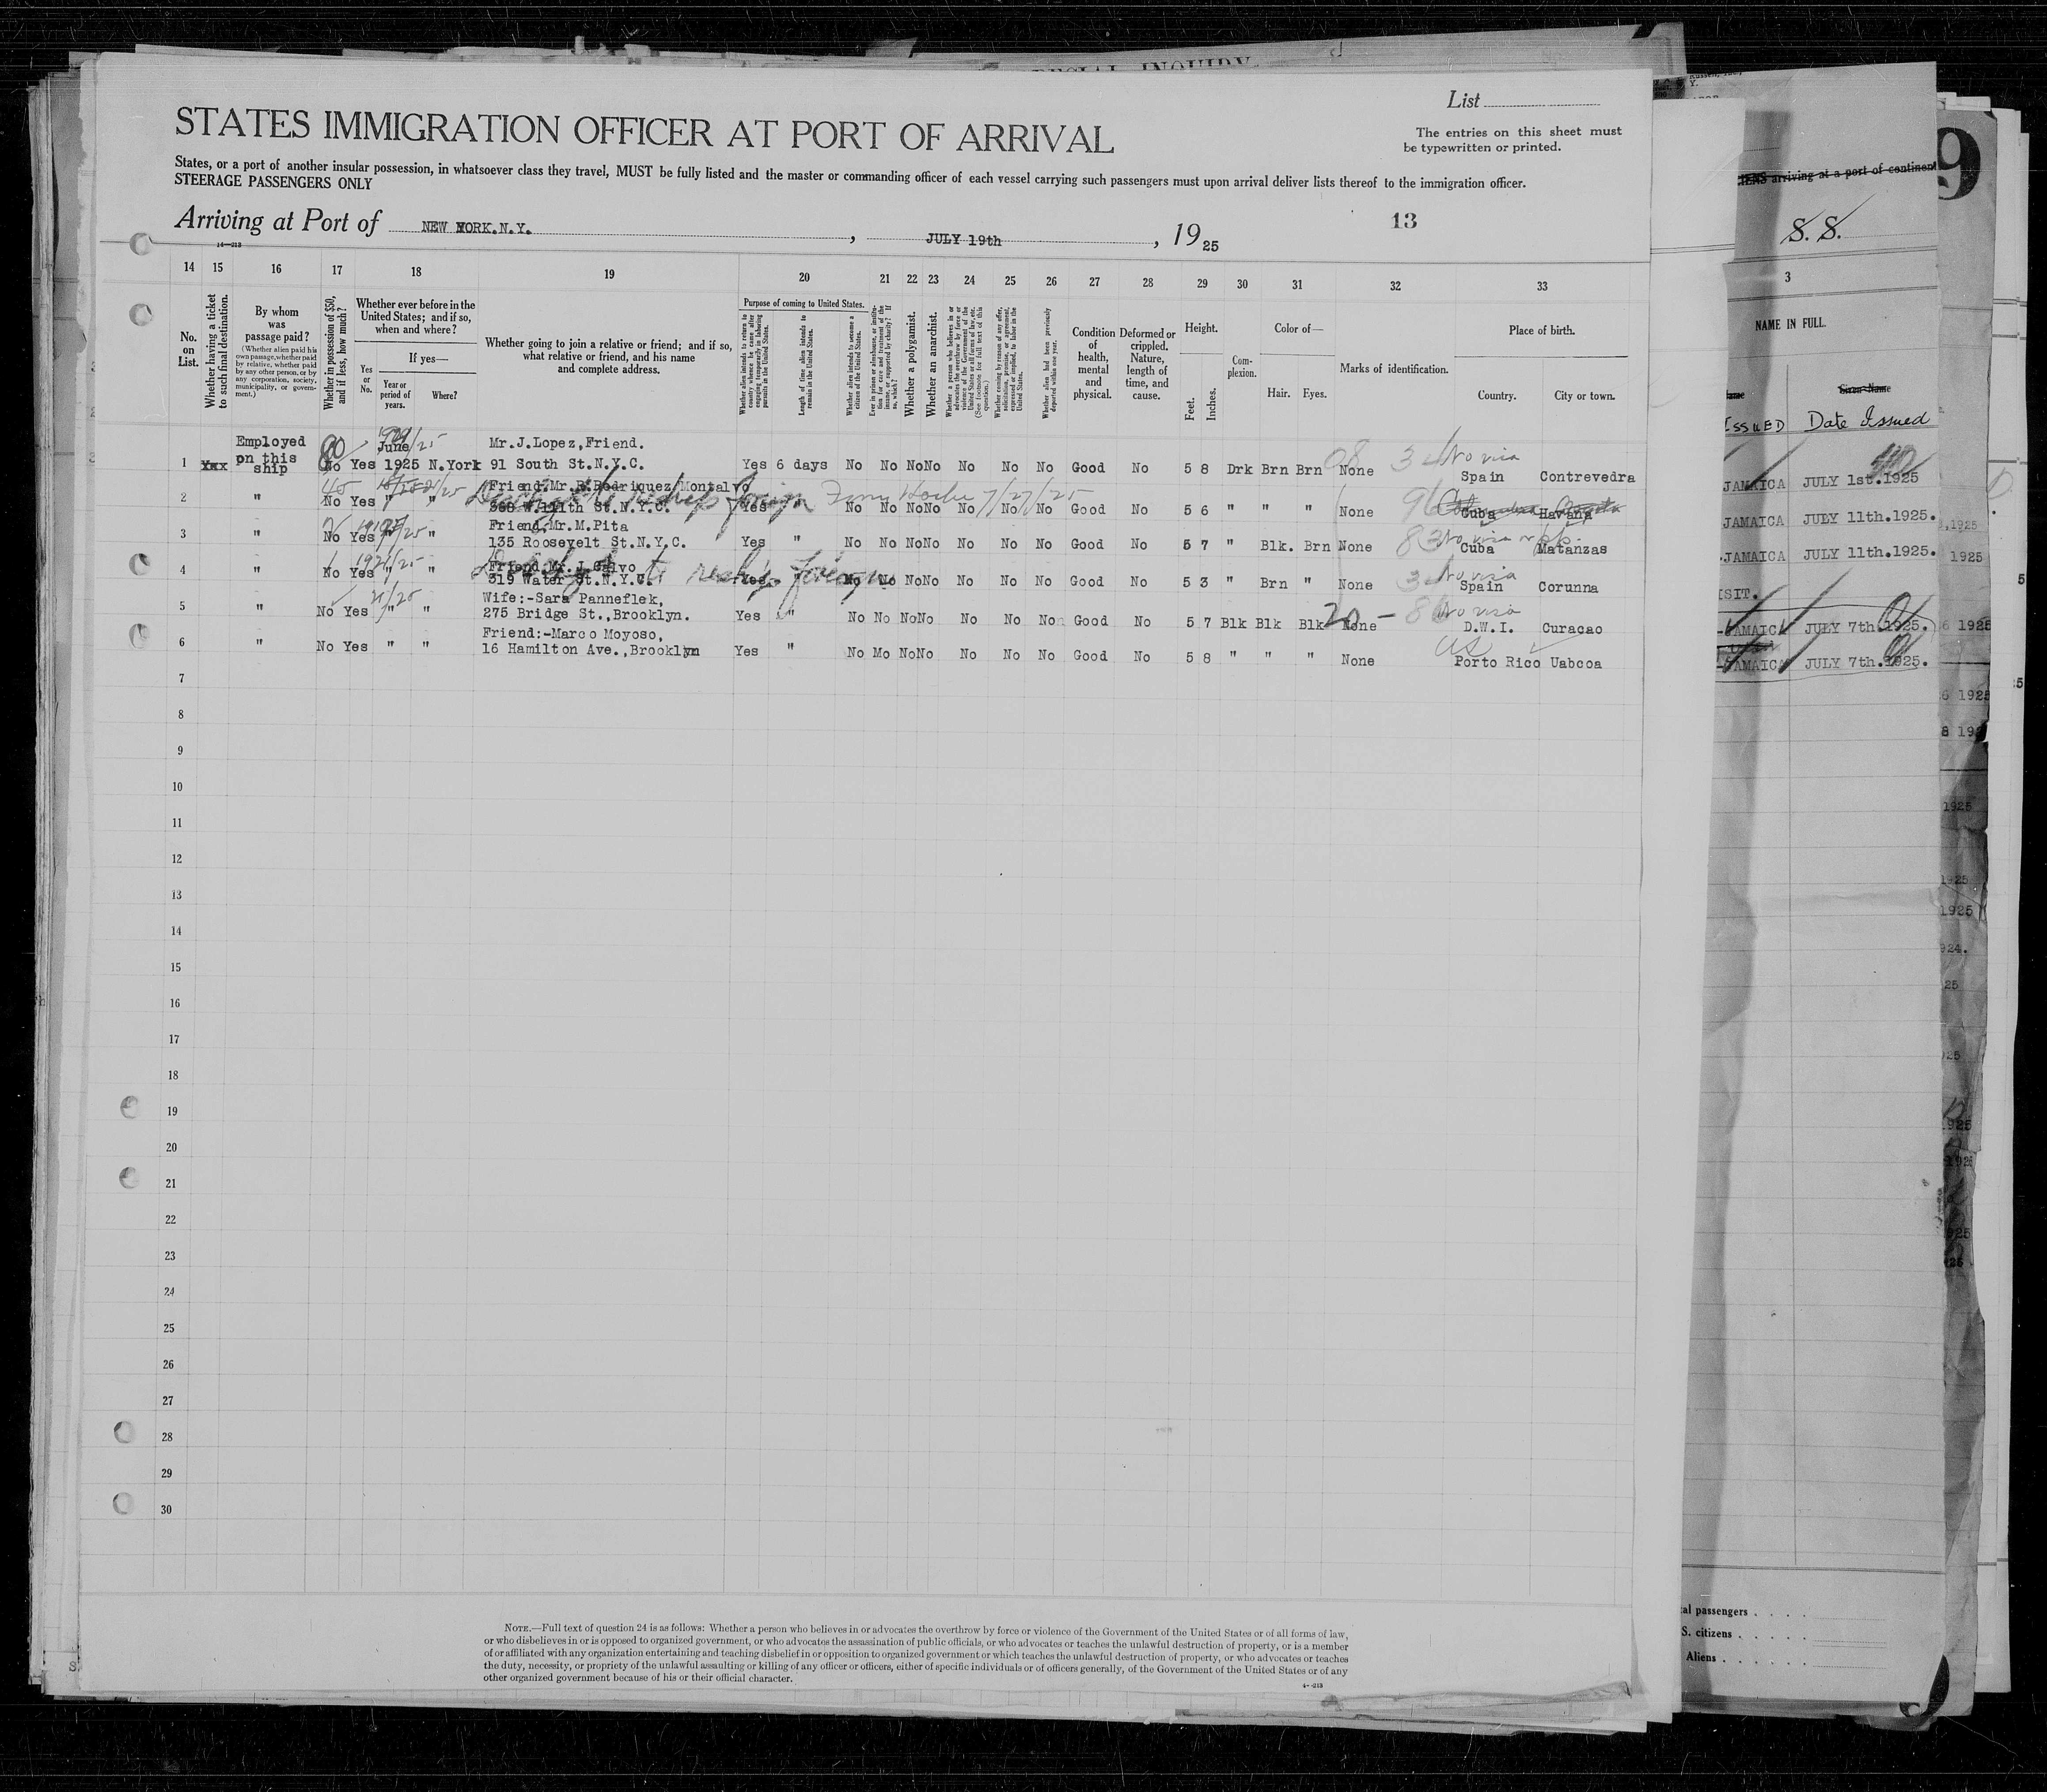 SPECIAL INQUIRY
List
STATES IMMIGRATION OFFICER AT PORT OF ARRIVAL
The entries on this sheet must
be typewritten or printed.
States, or a port of another insular possession, in whatsoever class they travel, MUST be fully listed and the master or commanding officer of each vessel carrying such passengers must upon arrival deliver lists thereof to the immigration officer.
STEERAGE PASSENGERS ONLY
Arriving at Port of NEW YORK.N.Y. , JULY 19th , 1925
13
14—213
14 15 16 17 18 19 20 21 22 23 24 25 26 27 28 29 30 31 32 33
No. on List.
Whether having a ticket to such final destination.
By whom was passage paid?
(Whether alien paid his own passage, whether paid by relative, whether paid by any other person, or by any corporation, society, municipality, or government.)
Whether in possession of $50, and if less, how much?
Whether ever before in the United States; and if so, when and where?
Yes or No.
If yes—
Year or period of years.
Where?
Whether going to join a relative or friend; and if so, what relative or friend, and his name and complete address.
Purpose of coming to United States.
Whether alien intends to return to country whence he came after engaging temporarily in laboring pursuits in the United States.
Length of time alien intends to remain in the United States.
Whether alien intends to become a citizen of the United States.
Ever in prison or almshouse or institution for care and treatment of the insane, or supported by charity? If so, which?
Whether a polygamist.
Whether an anarchist.
Whether a person who believes in or advocates the overthrow by force or violence of the Government of the United States or all forms of law, etc. (See footnote for full text of this question.)
Whether coming by reason of any offer, solicitation, promise, or agreement, expressed or implied, to labor in the United States.
Whether alien had been previously deported within one year.
Condition of health, mental and physical.
Deformed or crippled. Nature, length of time, and cause.
Height.
Feet. Inches.
Complexion.
Color of—
Hair. Eyes.
Marks of identification.
Place of birth.
Country. City or town.
Employed June /25 Mr.J.Lopez,Friend. No visa
1 on this ship No Yes 1925 N.York 91 South St.N.Y.C. Yes 6 days No No NoNo No No No Good No 5 8 Drk Brn Brn None Spain Contrevedra
Friend.Mr.R.Rodriquez Montalvo
7/27/25
2 " No Yes " " W.111th St.N.Y.C. Yes No No NoNo No No No Good No 5 6 " " " None Cuba Havana
Friend.Mr.M.Pita
3 " No Yes " " 135 Roosevelt St.N.Y.C. Yes " No No NoNo No No No Good No 5 7 " Blk. Brn None Cuba Matanzas
Friend.Mr.J.Calvo No visa
4 " No Yes " " 319 Water St.N.Y.C. Yes " No No NoNo No No No Good No 5 3 " Brn " None Spain Corunna
Wife:-Sara Panneflek, No visa
5 " No Yes " " 275 Bridge St.,Brooklyn. Yes " No No NoNo No No No Good No 5 7 Blk Blk Blk None D.W.I. Curacao
Friend:-Marco Moyoso, US
6 " No Yes " " 16 Hamilton Ave.,Brooklyn Yes " No Mo NoNo No No No Good No 5 8 " " " None Porto Rico Uabcoa
7
8
9
10
11
12
13
14
15
16
17
18
19
20
21
22
23
24
25
26
27
28
29
30
NOTE.—Full text of question 24 is as follows: Whether a person who believes in or advocates the overthrow by force or violence of the Government of the United States or of all forms of law,
or who disbelieves in or is opposed to organized government, or who advocates the assassination of public officials, or who advocates or teaches the unlawful destruction of property, or is a member
of or affiliated with any organization entertaining and teaching disbelief in or opposition to organized government or which teaches the unlawful destruction of property, or who advocates or teaches
the duty, necessity, or propriety of the unlawful assaulting or killing of any officer or officers, either of specific individuals or of officers generally, of the Government of the United States or of any
other organized government because of his or their official character.
9
arriving at a port of continent
S. S.
3
NAME IN FULL.
Given Name
ISSUED Date Issued
JAMAICA JULY 1st.1925
JAMAICA JULY 11th.1925.
JAMAICA JULY 11th.1925.
ISIT.
JAMAICA JULY 7th.1925.
JAMAICA JULY 7th.1925.
al passengers
S. citizens
Aliens